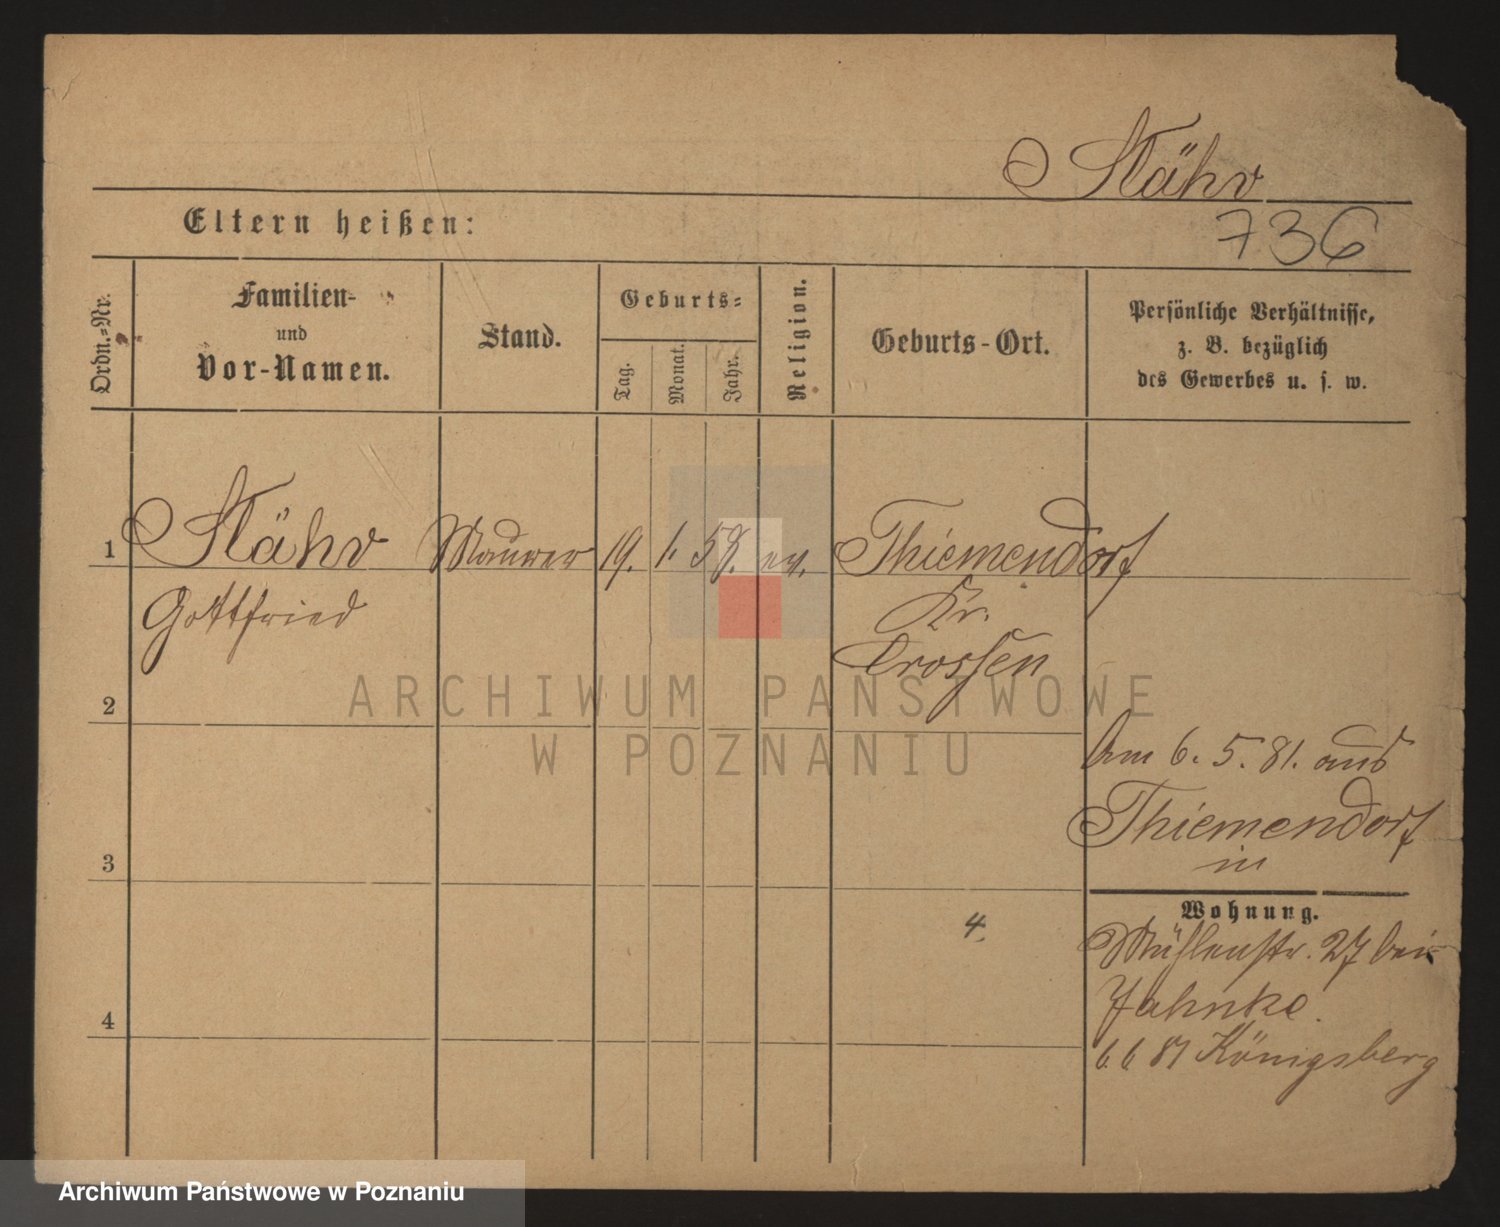 Stähr
736
Eltern heißen:
Ordn.-Nr.
Familien-
und
Vor-Namen.
Stand.
Geburts-
Tag.
Monat.
Jahr.
Religion.
Geburts-Ort.
Persönliche Verhältnisse,
z. B. bezüglich
des Gewerbes u. s. w.
1 Stähr Maurer 19. 1. 58. ev. Thiemendorf
Gottfried Kr.
Crossen
2
Am 6. 5. 81. aus
Thiemendorf
in
3
Wohnung.
4.
Mühlenstr. 27 bei
Jahnke.
4
6 6 81 Königsberg
ARCHIWUM PAŃSTWOWE
W POZNANIU
Archiwum Państwowe w Poznaniu